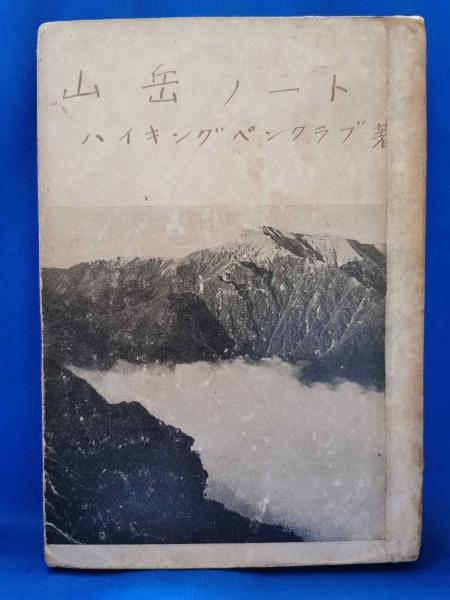 山岳ノート
ハイキングペンクラブ著